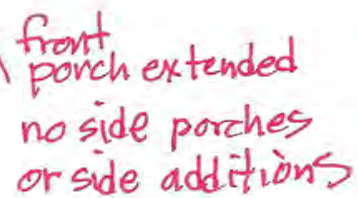 front
porch extended
no side porches
or side additions